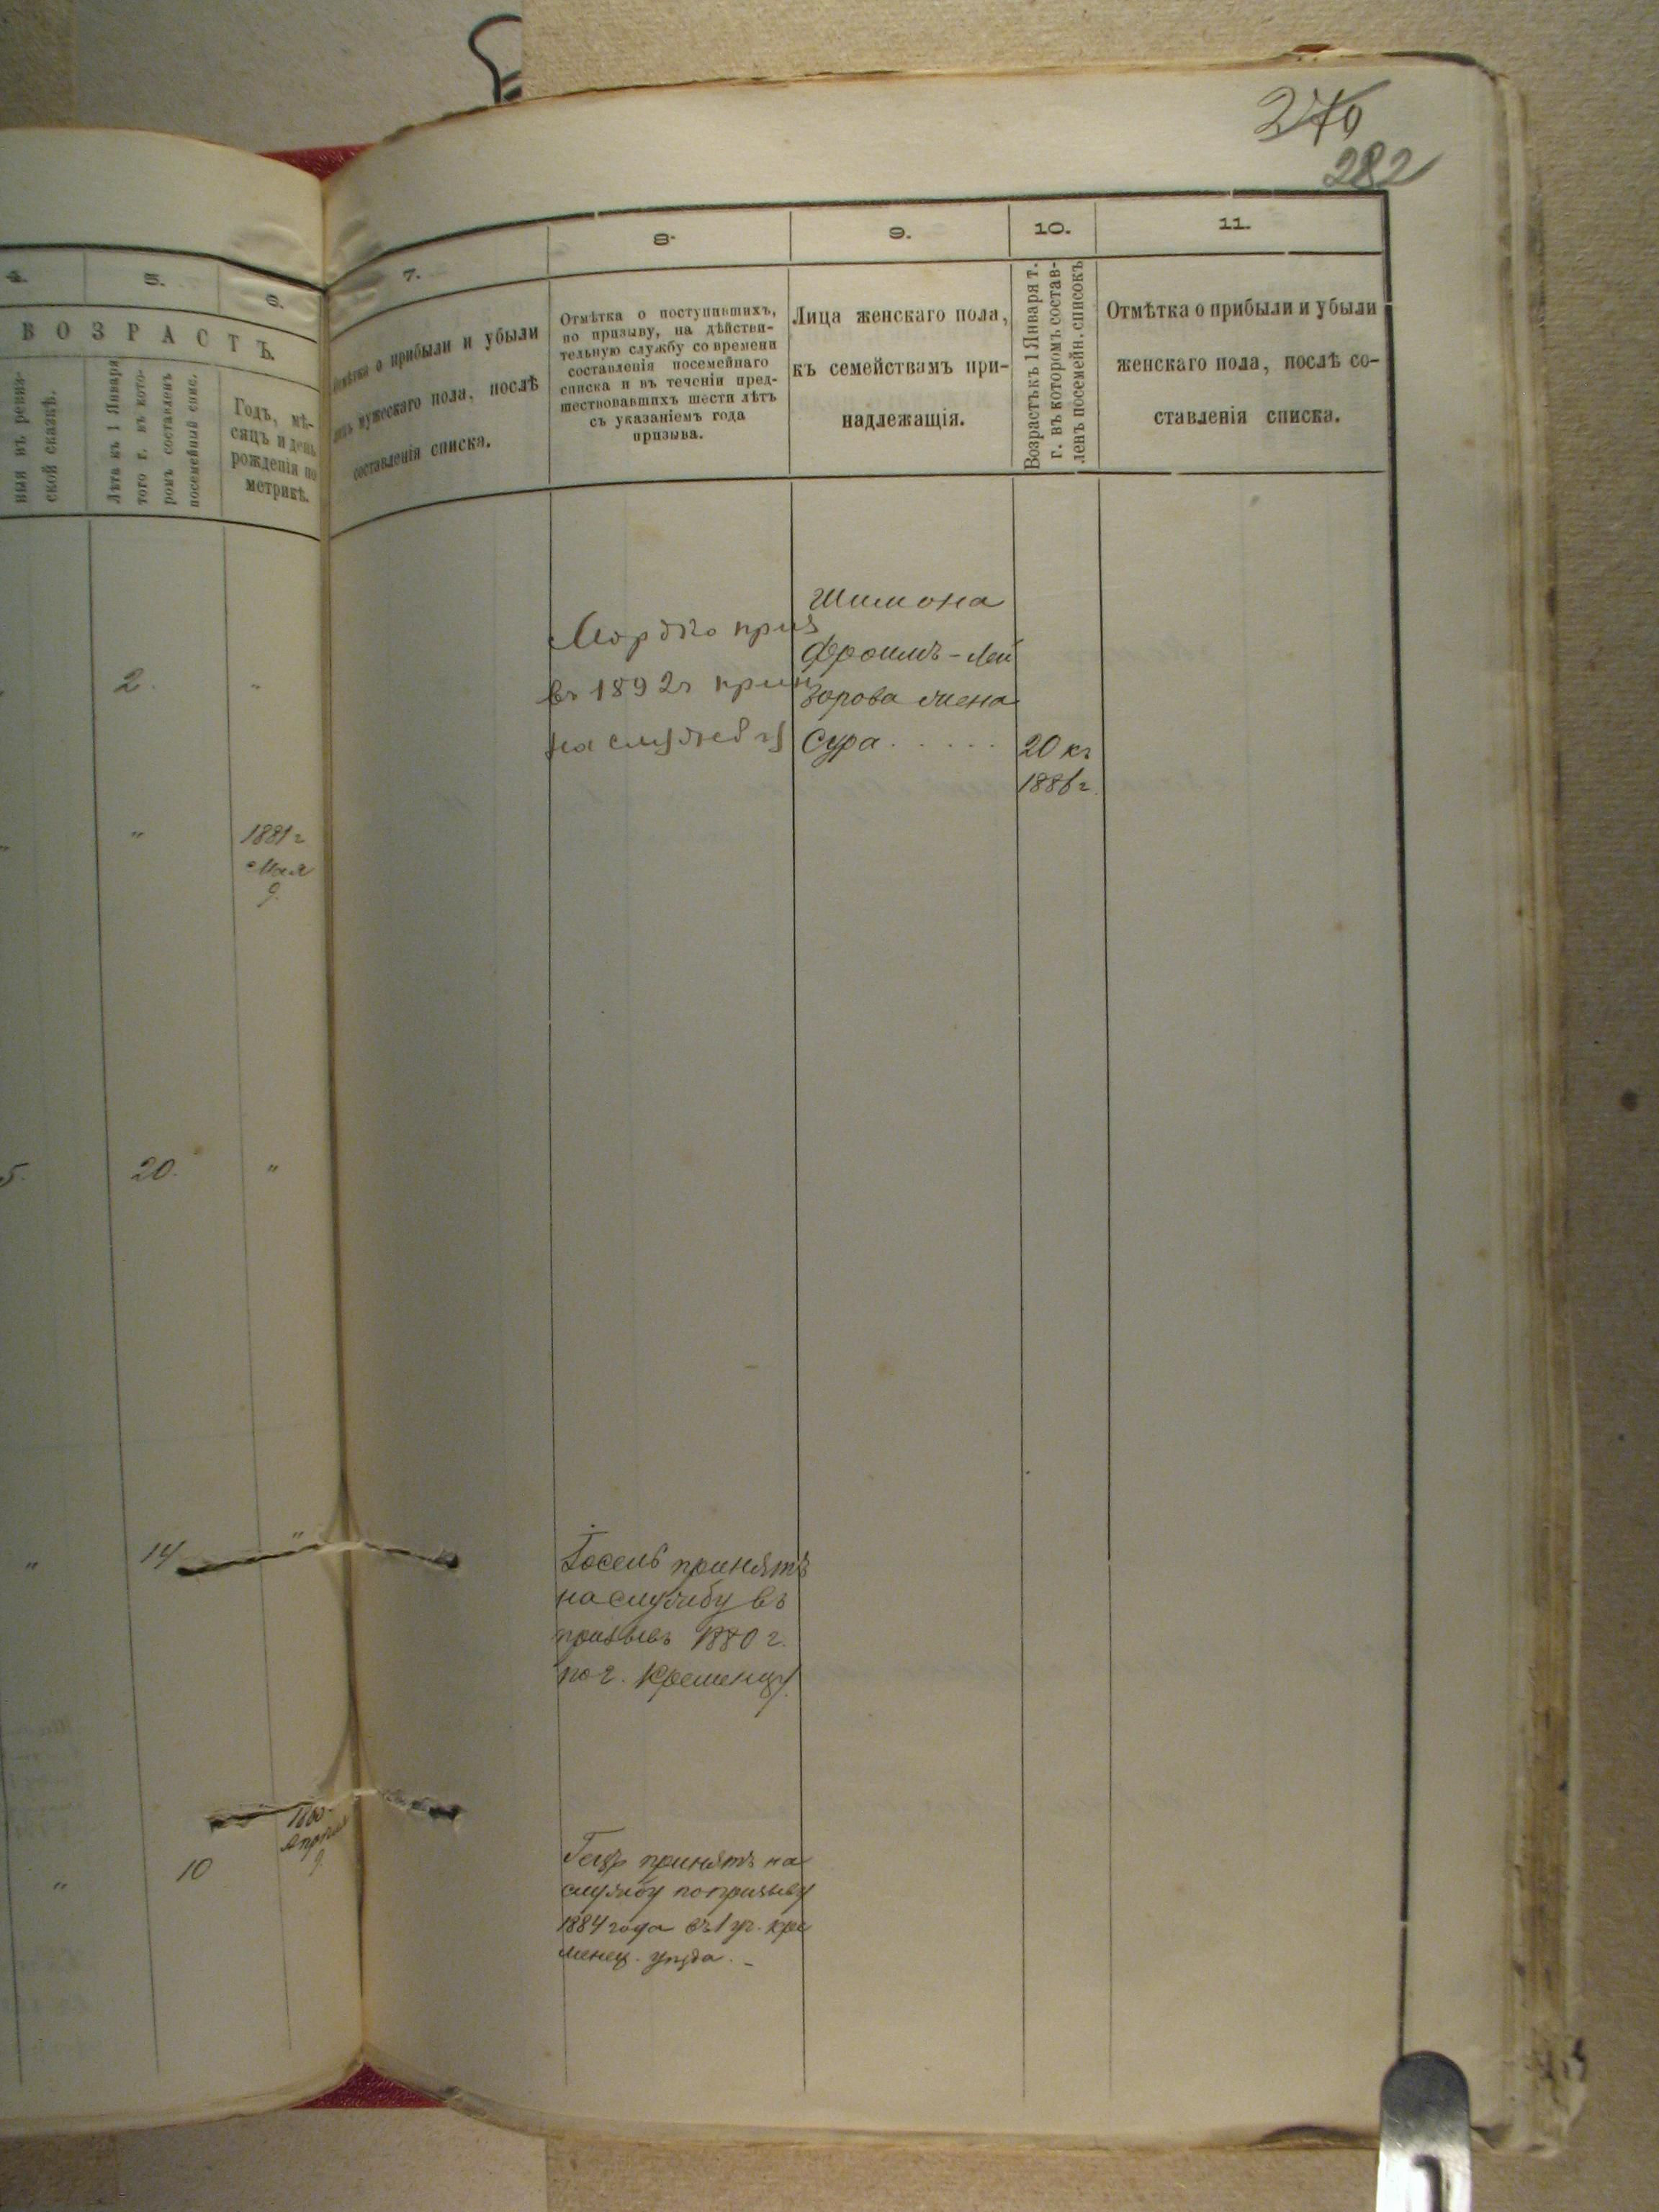 282
4.
5.
6.
ВОЗРАСТЪ.
ныя въ ревиз-
ской сказкѣ.
Лѣта къ 1 Января
того г. въ кото-
ромъ составленъ
посемейный спис.
Годъ, мѣ-
сяцъ и день
рожденія по
метрикѣ.
2.
"
"
1881 г
Мая
9.
5.
20.
"
"
14
"
"
10
Апрѣля
9
7.
8.
9.
10.
11.
о прибыли и убыли
мужескаго пола, послѣ
составленія списка.
Отмѣтка о поступившихъ,
по призыву, на дѣйстви-
тельную службу со времени
составленія посемейнаго
списка и въ теченіи пред-
шествовавшихъ шести лѣтъ
съ указаніемъ года
призыва.
Лица женскаго пола,
къ семействамъ при-
надлежащія.
Возрастъ къ 1 Января т.
г. въ которомъ состав-
ленъ посемейн. списокъ
Отмѣтка о прибыли и убыли
женскаго пола, послѣ со-
ставленія списка.
Мордко приз
въ 1892 г прин
на службу
Шимона
Фроимъ-Лей
зорова жена
Сура . . . . .
20 къ
1886 г.
Іосель принятъ
на службу въ
призывъ 1880 г.
по г. Кременцу.
принятъ на
службу по призыву
1884 года въ 1 уч. Кре
менец. уѣзда. -